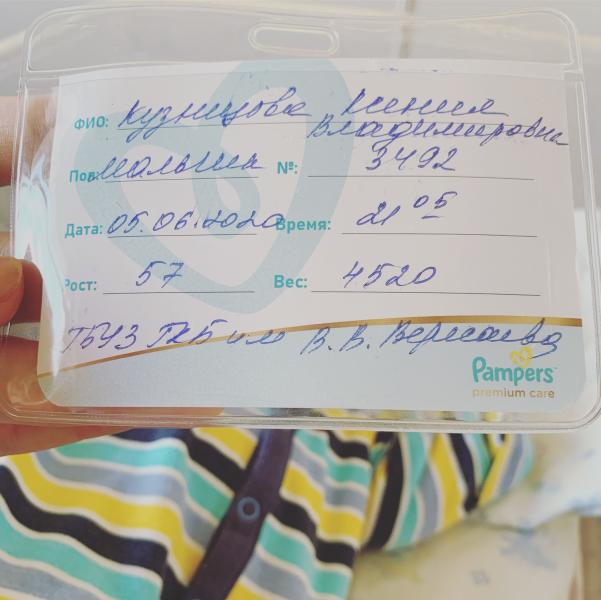 ФИО: Кузницова Ксения
Владимировна
Пол: мальчик №: 3492
Дата: 05.06.2020 Время: 21 05
Рост: 57 Вес: 4520
ГБУЗ ГКБ им В.В. Вересаева
Pampers
premium care